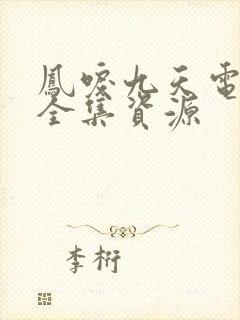 鳳唳九天電
全集資源
李桁